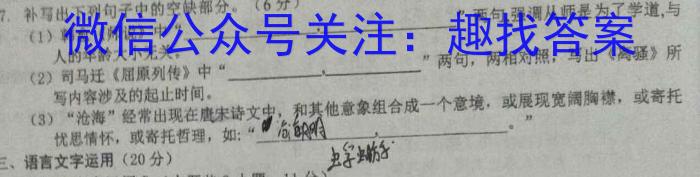 7. 补写出下列句子中的空缺部分。（6分）
（1）
两句,强调从师是为了学道,与
人的年龄大小无关。
微信公众号关注：趣找答案
（2）司马迁《屈原列传》中“____________，____________”两句，两相对照，写出《离骚》所
写内容涉及的起止时间。
（3）“沧海”经常出现在唐宋诗文中，和其他意象组合成一个意境，或展现宽阔胸襟，或寄托
忧思情怀，或寄托哲理，如：“____________，____________。”
三、语言文字运用（20分）